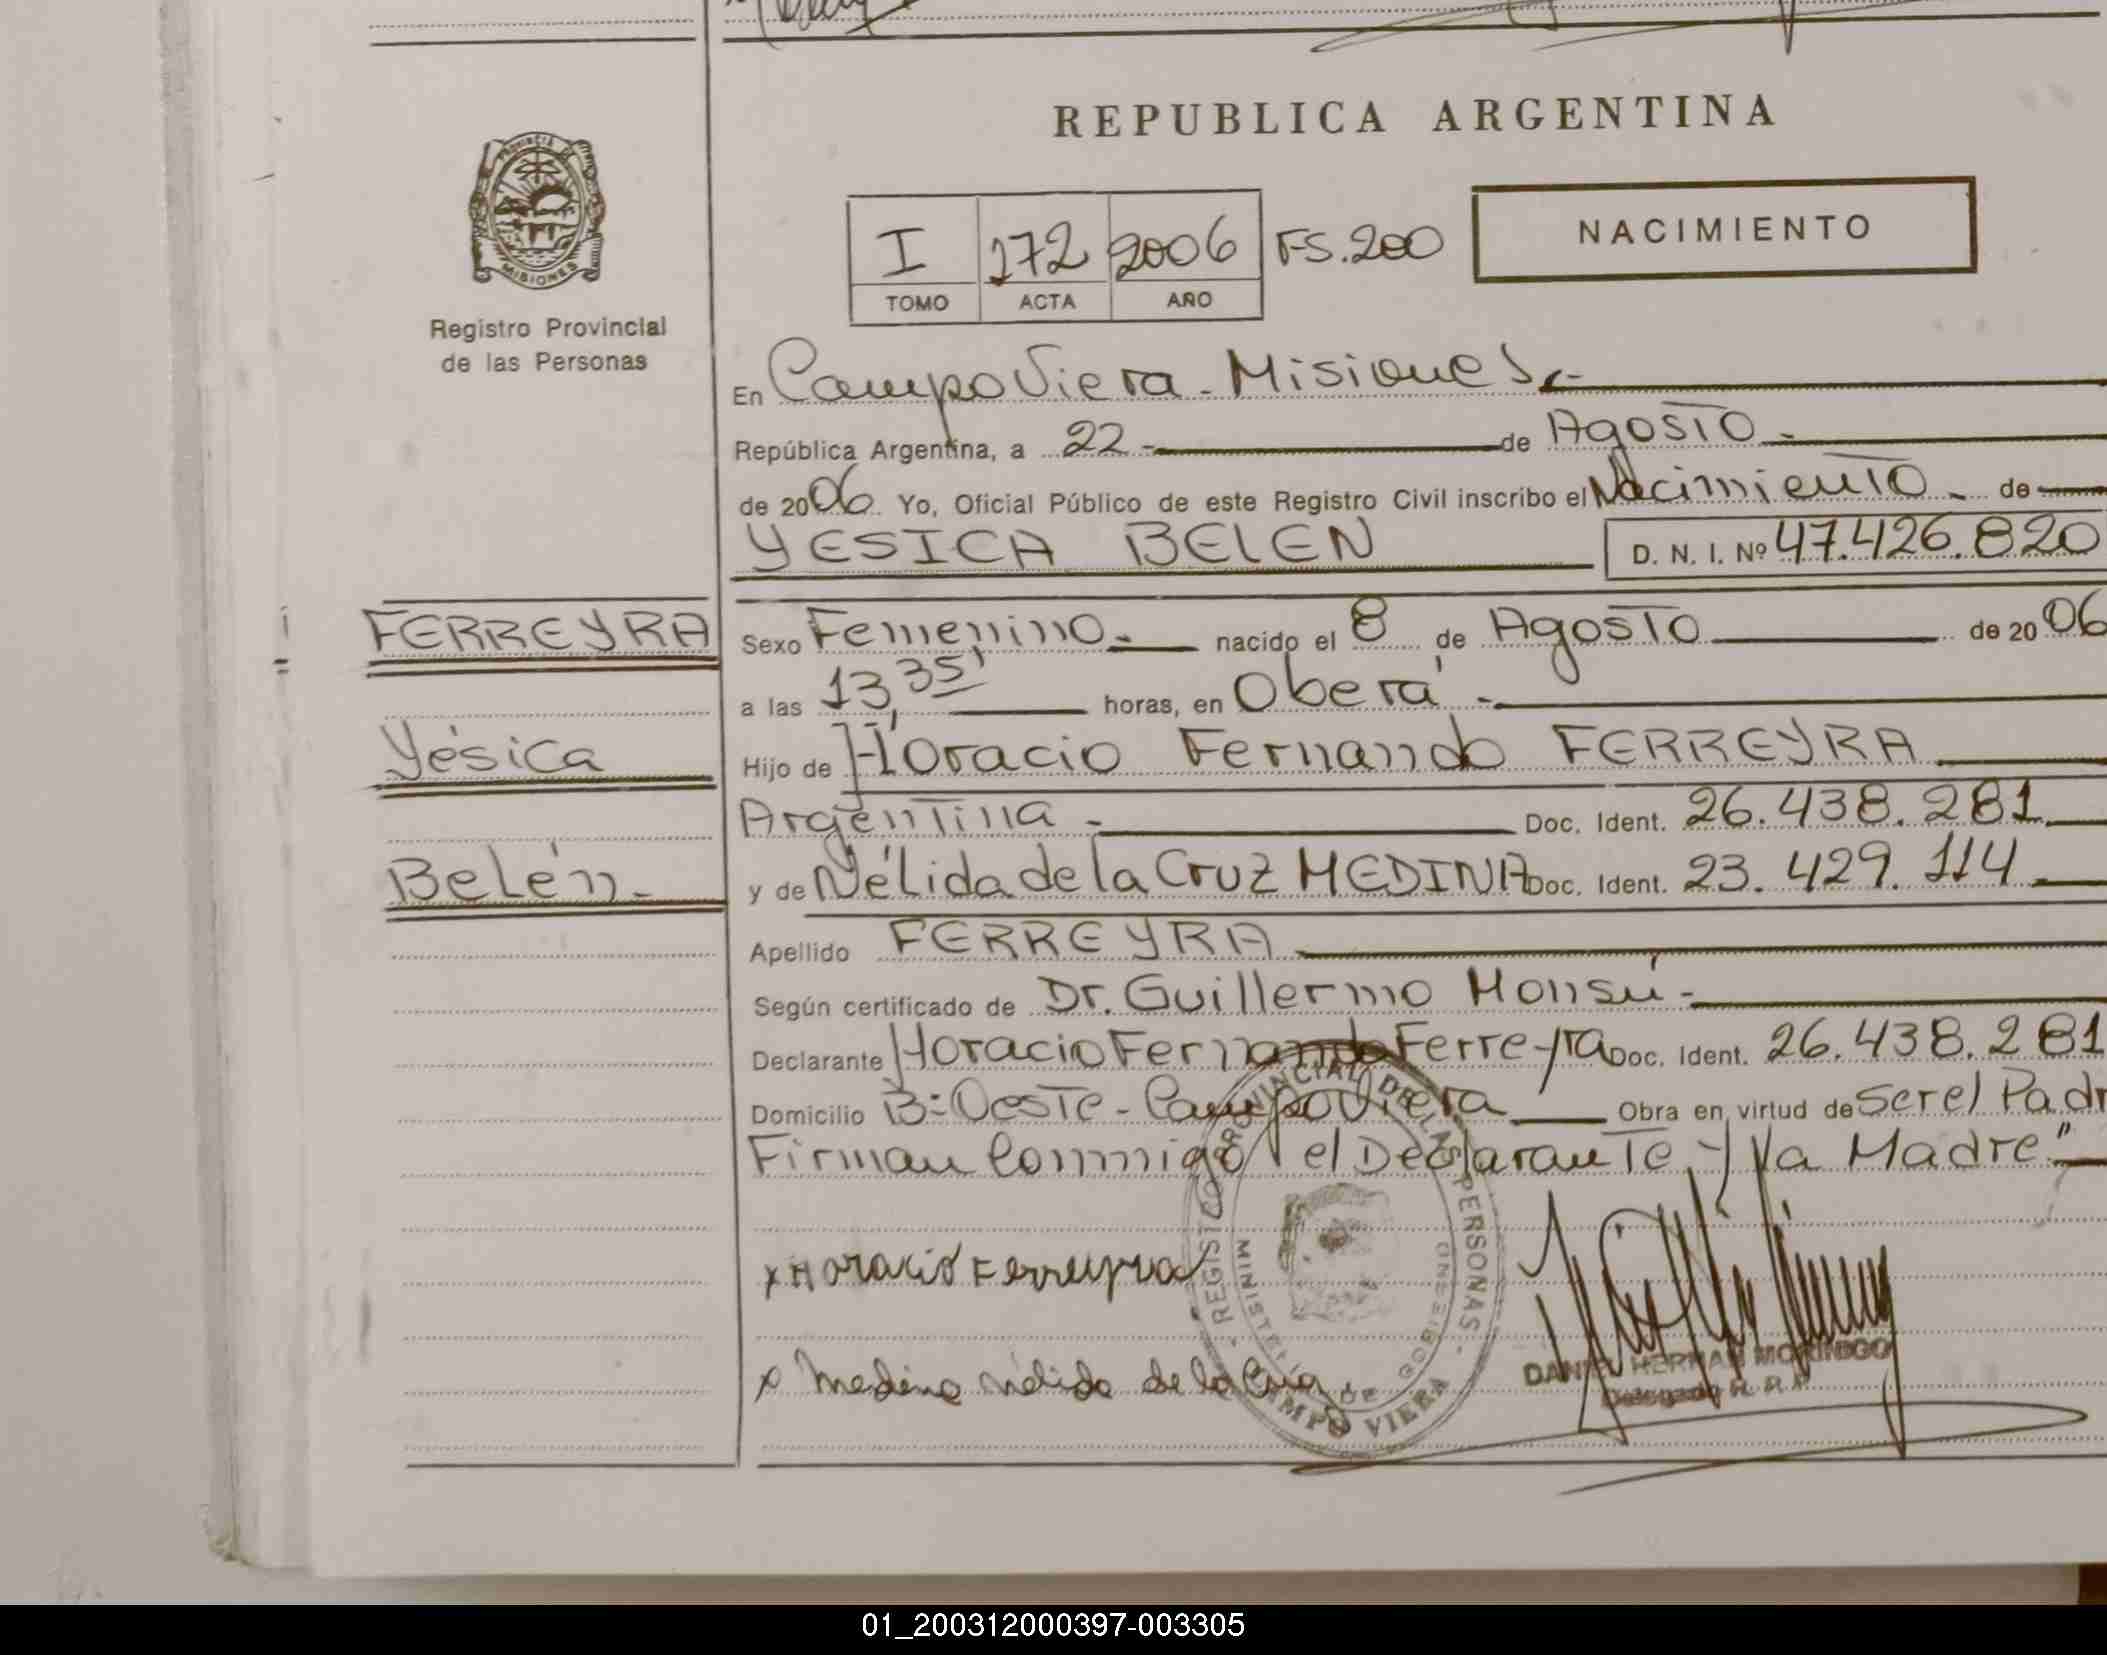 REPUBLICA ARGENTINA
PROVINCIA DE
MISIONES
Registro Provincial
de las Personas
I 172 2006 FS.200
TOMO ACTA AÑO
NACIMIENTO
En Campo Viera - Misiones.-
República Argentina, a 22 - de Agosto -
de 2006 Yo, Oficial Público de este Registro Civil inscribo el Nacimiento - de
YESICA BELEN D. N. I. Nº 47.426.820
FERREYRA
Yésica
Belén -
Sexo Femenino - nacido el 8 de Agosto de 2006
a las 13,35' horas, en Oberá -
Hijo de Horacio Fernando FERREYRA
Argentina - Doc. Ident. 26.438.281
y de Nélida de la Cruz MEDINA Doc. Ident. 23.429.114
Apellido FERREYRA
Según certificado de Dr. Guillermo Monsú -
Declarante Horacio Fernando Ferreyra Doc. Ident. 26.438.281
Domicilio B: Oeste - Campo Viera Obra en virtud de Ser el Padr
Firman Conmigo el Declarante y la Madre"
x Horacio Ferreyra
x Medina nélida de la Cruz
REGISTRO PROVINCIAL DE LAS PERSONAS
MINISTERIO DE GOBIERNO
CAMPO VIERA
DANIEL HERNAN MORINIGO
Delegado R. P. P.
01_200312000397-003305